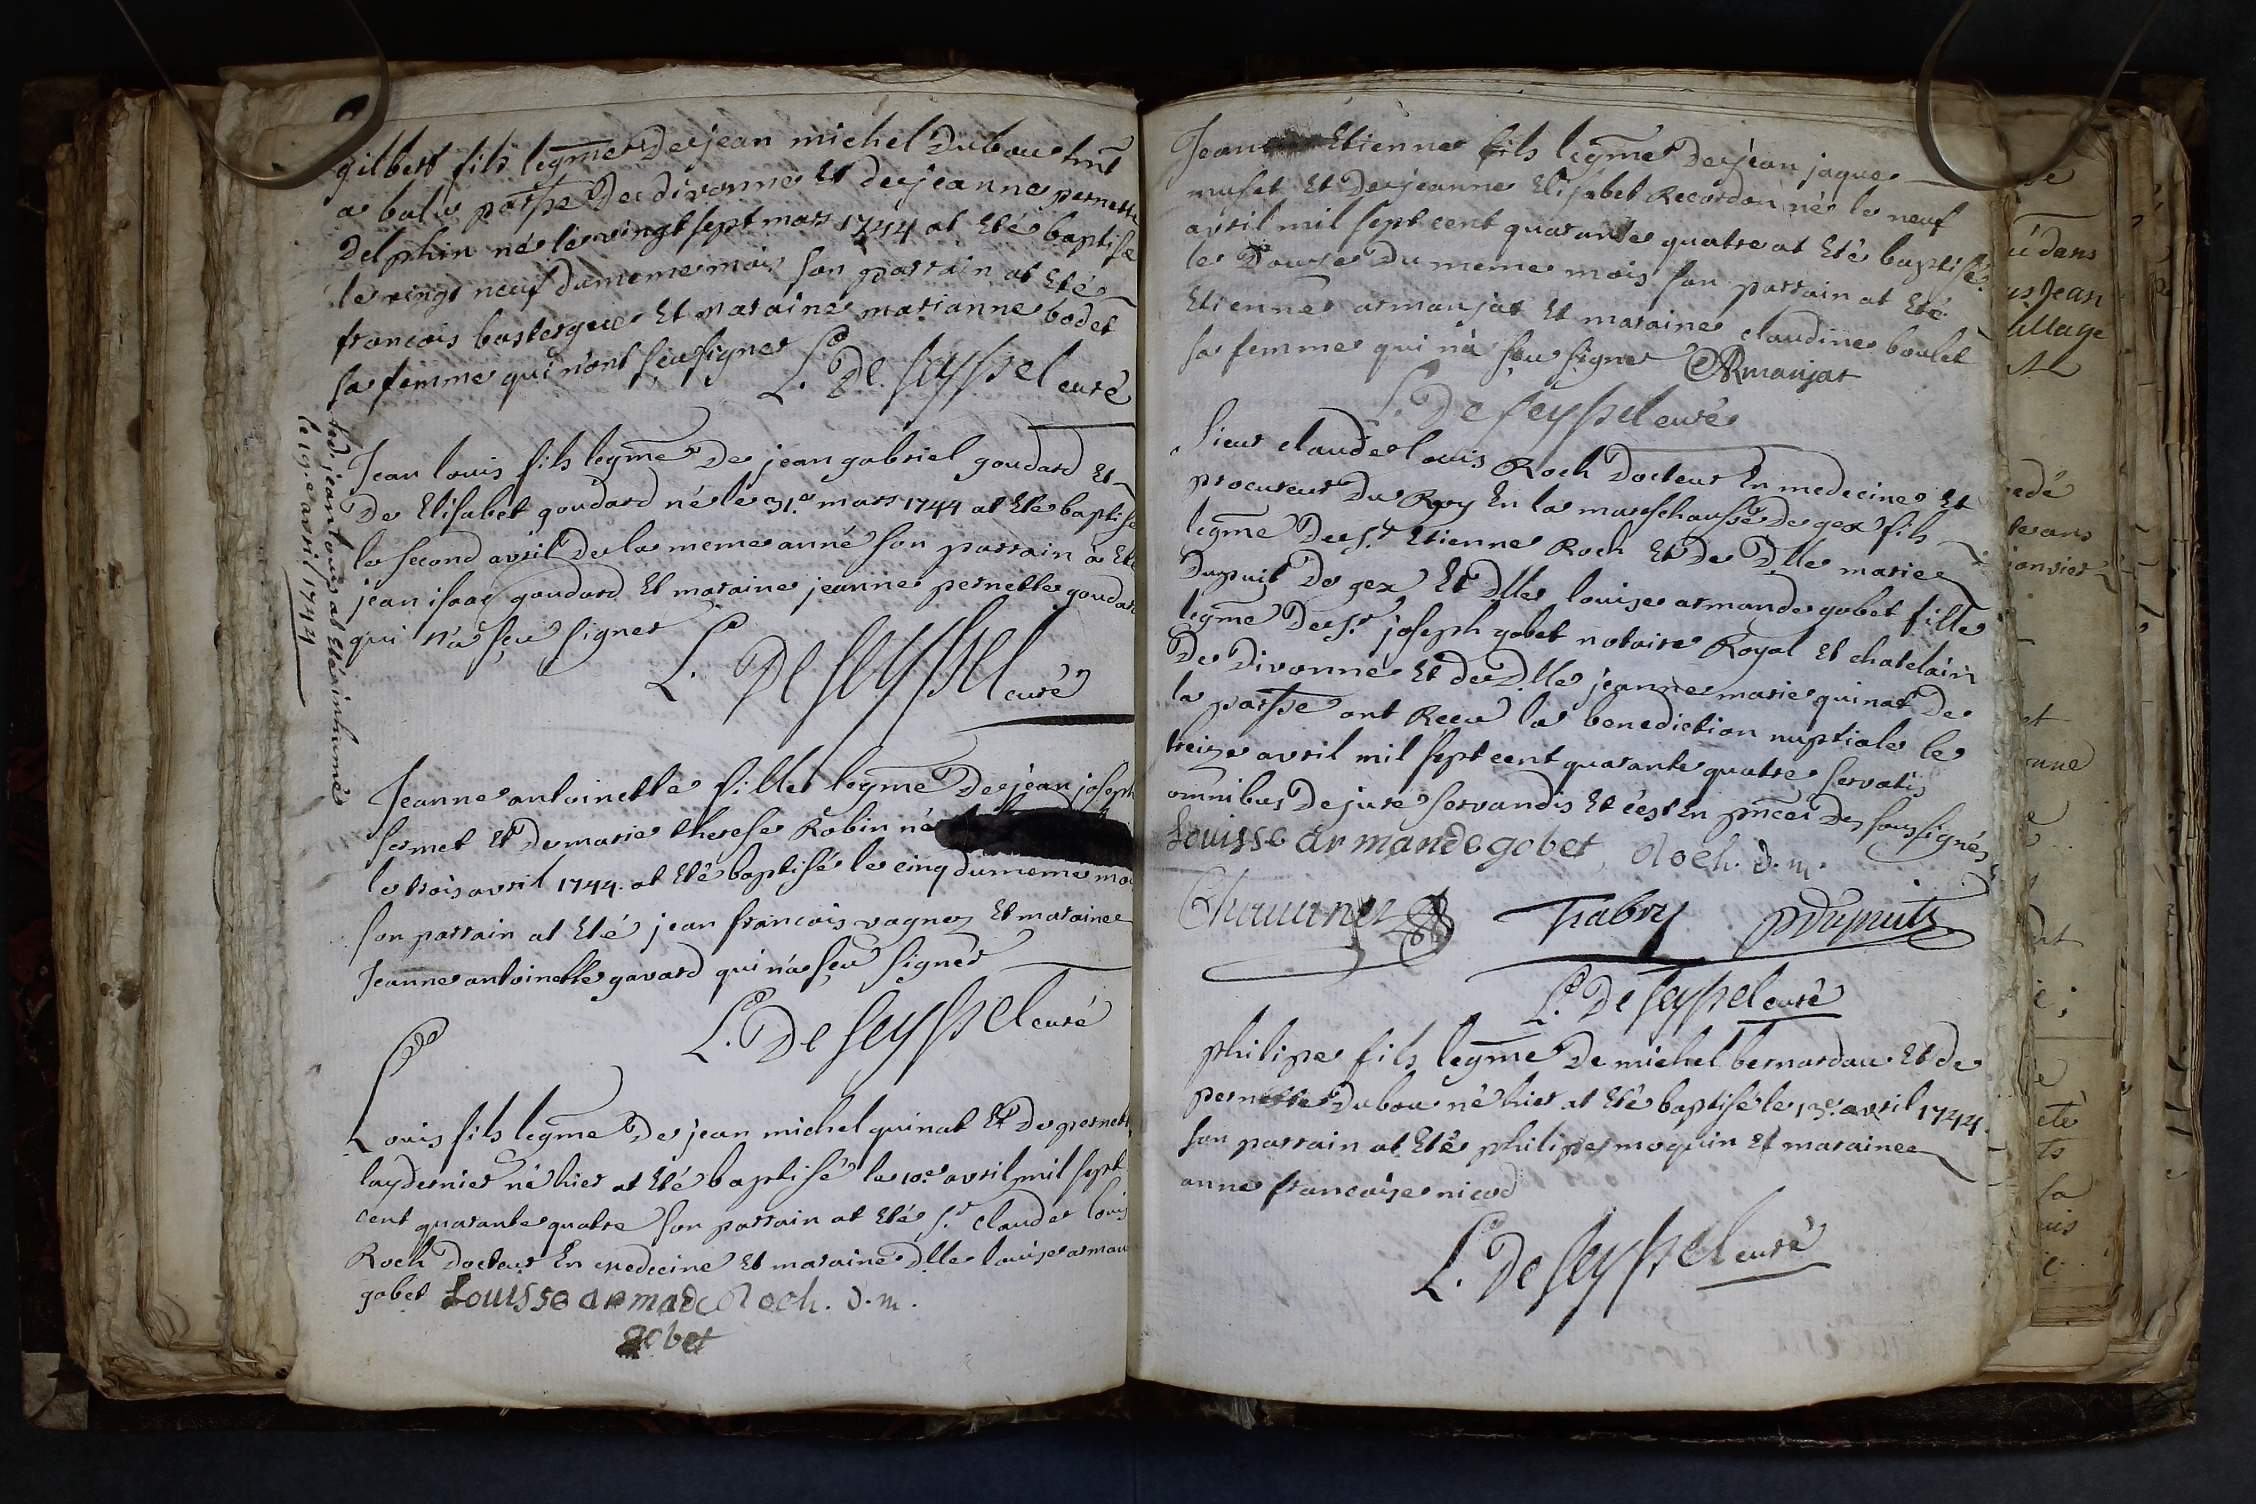 gilbert fils legme de jean michel Dubou hnt
a balu parsse de divonne Et de jeanne pernette
Delphin né le vingt sept mars 1744 at Eté baptisé
le vingt neuf du meme mois son parrain at Eté
francois bastergue Et maraine marianne bodet
sa femme qui n'ont sçu signer
L. De seyssel curé
Jean louis fils legme De jean gabriel goudard Et
De Elisabet goudard né le 31e mars 1744 at Eté baptisé
le second avril de la meme anné son parrain a Eté
jean isaac goudard Et maraine jeanne pernette goudard
qui n'a sçu signer
L. De seyssel curé
led. jean louis at Eté inhumé
le 19e avril 1744
Jeanne antoinette fille legme De jean joseph
sermet Et De marie therese Robin né
le trois avril 1744. at Eté baptisé le cinq du meme moi
son parrain at Eté jean francois vagney Et maraine
Jeanne antoinette gavard qui n'a sçu signer
L. De seyssel curé
Louis fils legme De jean michel quinat Et De pernette
laydernier né hier at Eté baptisé le 10e avril mil sept
cent quarante quatre son parrain at Eté s.r claude louis
Roch Docteur En medecine Et maraine Dlle louise arman
gobet Louisse armade Roch. d. m.
gobet
Jean Etienne fils legme De jean jaque
muset Et De jeanne Elisabet Recordon né le neuf
avril mil sept cent quarante quatre at Eté baptisé
le Douze Du meme mois son parrain at Eté
Etienne armanjat Et maraine claudine boulet
sa femme qui n'a sçu signer Armanjat
L. De seyssel curé
sieur claude louis Roch Docteur En medecine Et
procureur Du Roy En la mareschaussé de gex fils
legme De s.r Etienne Roch Et De Dlle marie
Dupuit De gex, Et Dlle louise armande gobet fille
legme De s.r joseph gobet notaire Royal Et chatelain
De Divonne Et de Dlle jeanne marie quinat De
la parsse ont Receu la benediction nuptiale le
treize avril mil sept cent quarante quatre servatis
omnibus De jure servandis Et c'est En pnce Des soussignés
Louisse armande gobet, Roch. d. m.
fabry PDupuits
L. De seyssel curé
philipe fils legme De michel bernardau Et de
pernette Dubou né hier at Eté baptisé le 13e avril 1744.
son parrain at Eté philipe moquin Et maraine
anne francoise nicod
L. De seyssel curé